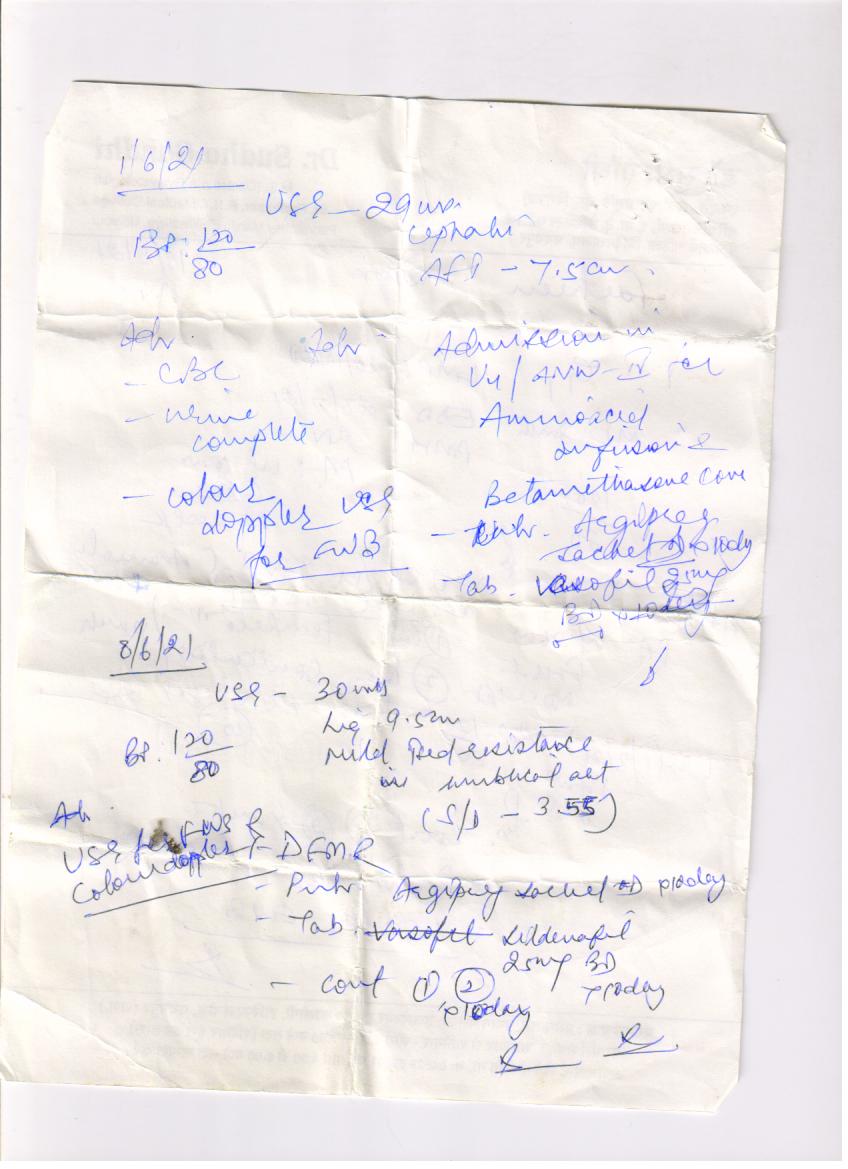 1/6/21
USG - 29 wks
Cephalic
BP. 120/80
AFI - 7.5cm.
Adv.
- CBC
- Urine
complete
- Colour
doppler USG
for FWB
Adv -
Admission in
for
Aminoacid
infusion &
Betamethasone Cover
- Argipreg
sachet OD x 10day
Tab. Vasofil 25mg
BD x 10day
8/6/21
USG - 30 wks
Liq 9.5cm
BP. 120/80
mild resistance
in umbilical art
(S/D - 3.55)
Adv.
USG for FWB &
Colour doppler
- DFMR
- Argipreg sachet OD x 10day
- Tab. Vasofil Sildenafil
25mg BD
x 10day
- cont ① ②
x 10day